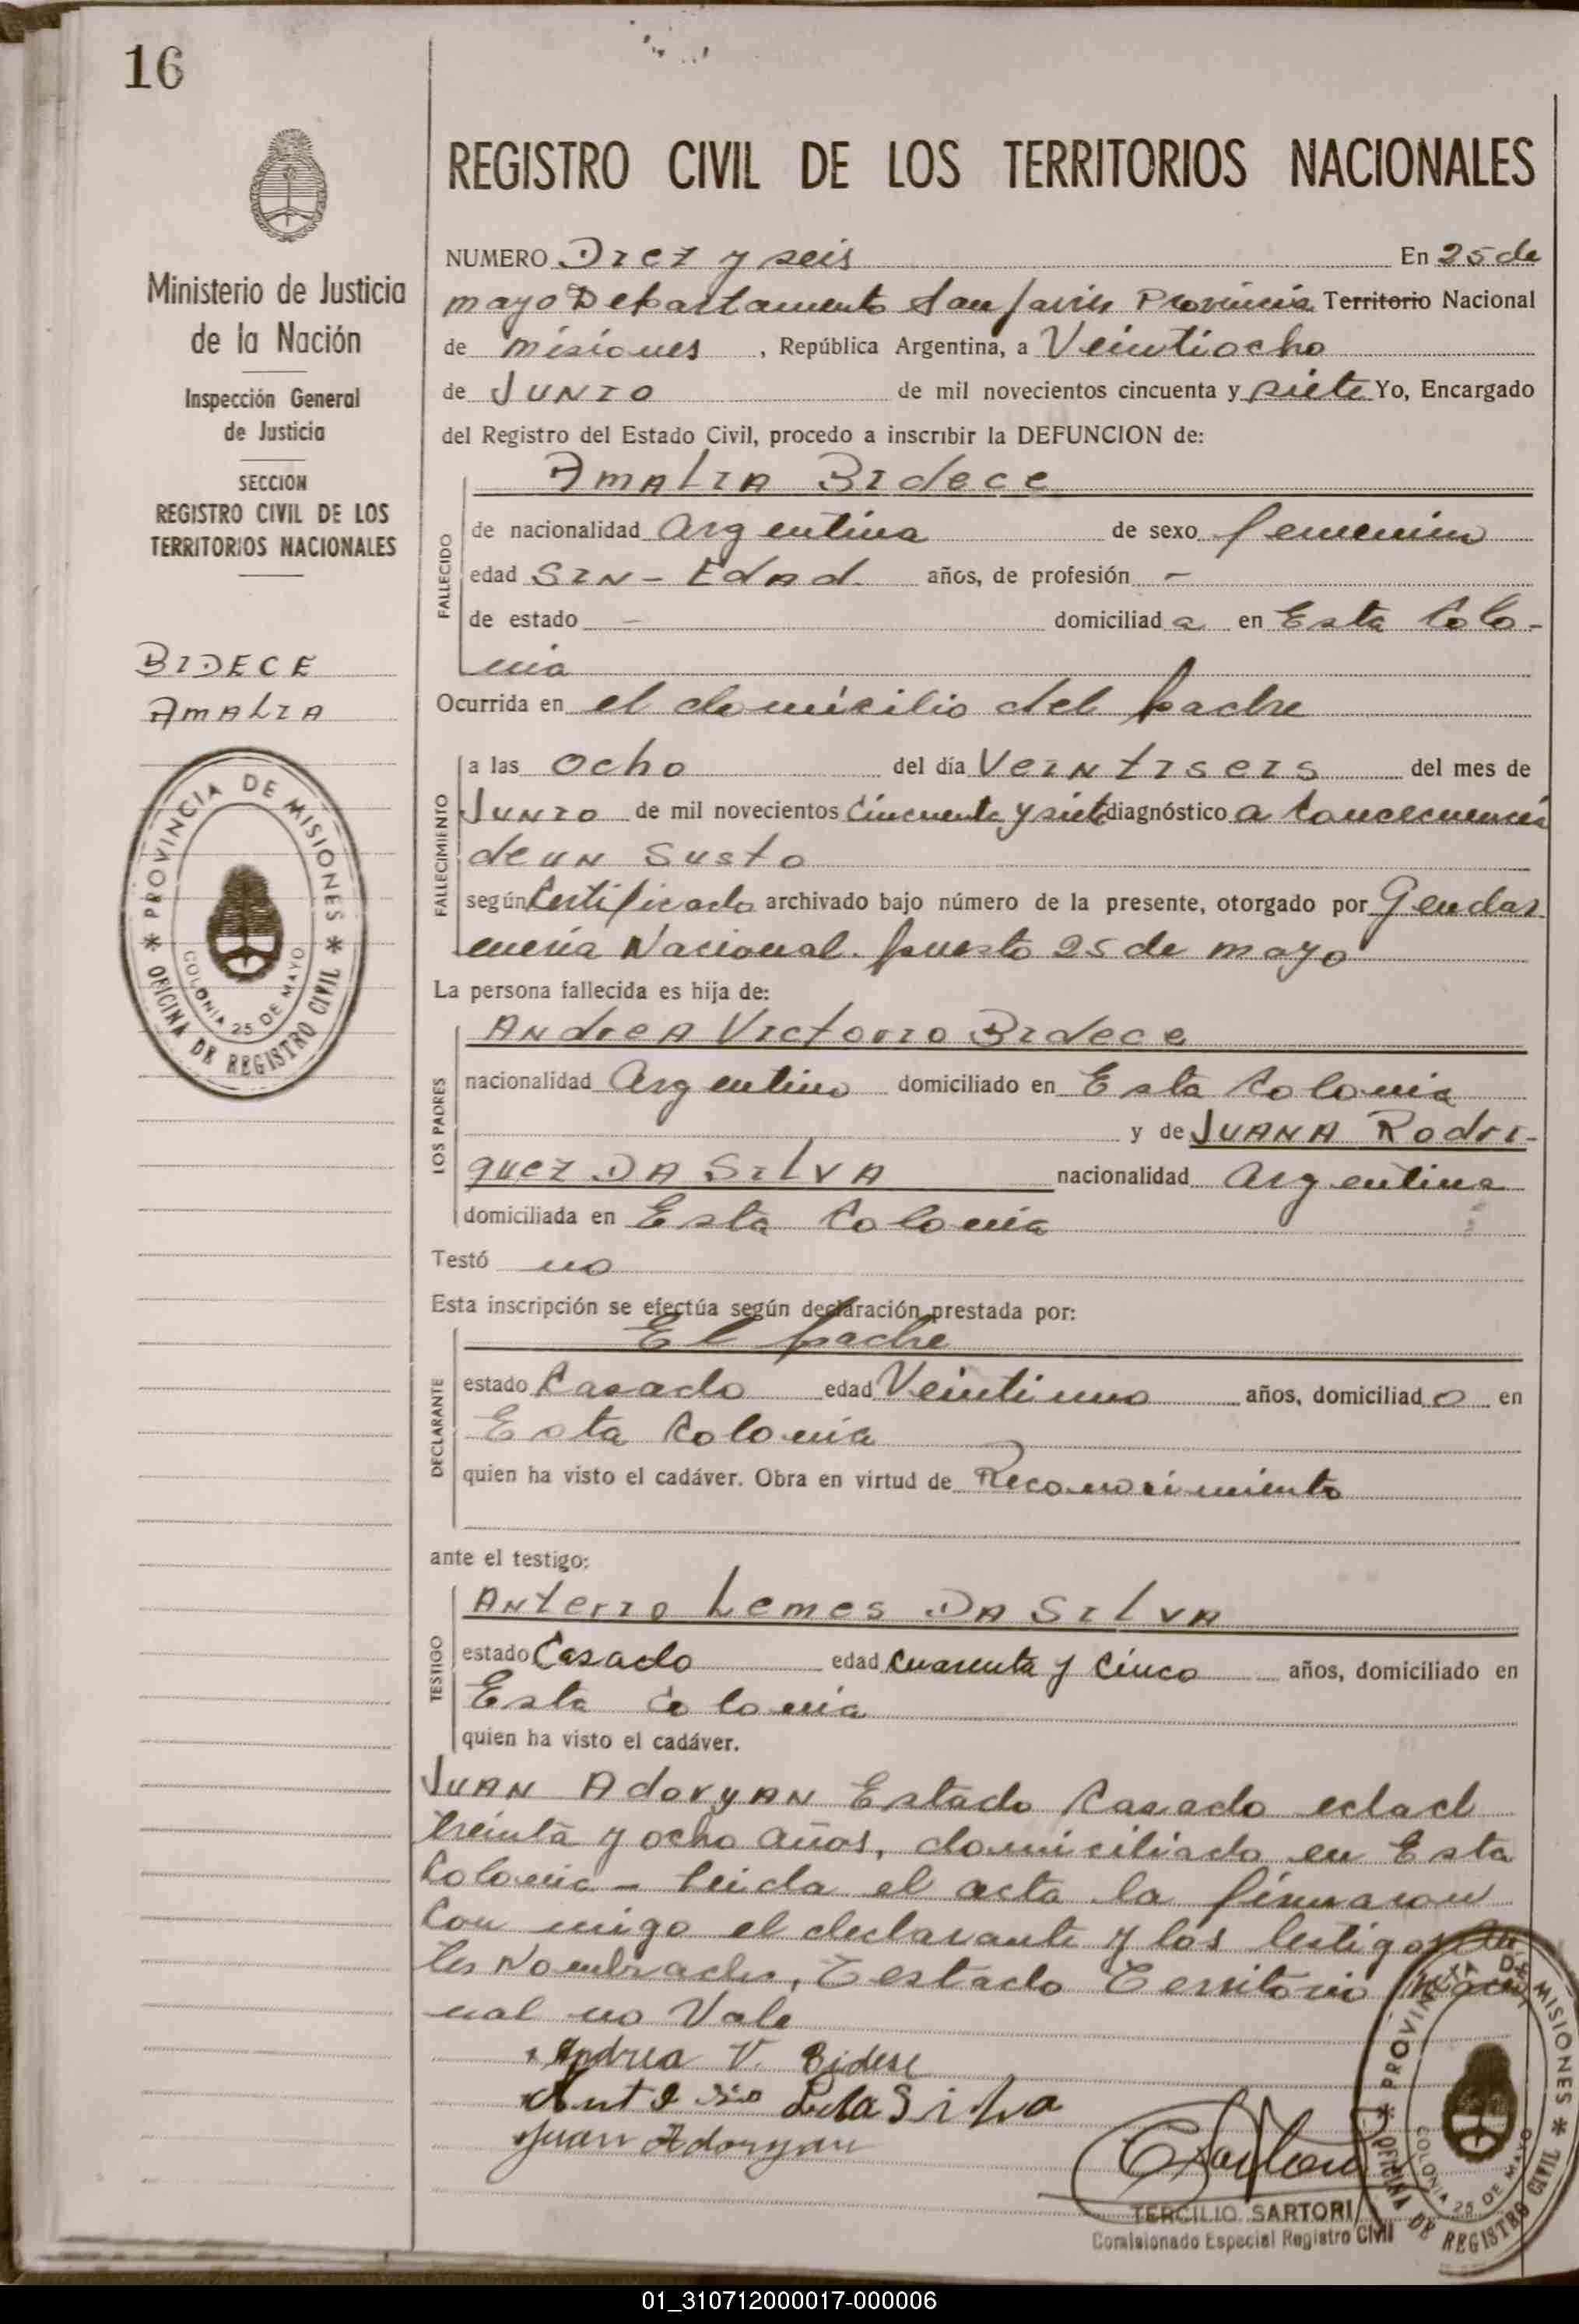 16
REGISTRO CIVIL DE LOS TERRITORIOS NACIONALES
Ministerio de Justicia
de la Nación
Inspección General
de Justicia
SECCION
REGISTRO CIVIL DE LOS
TERRITORIOS NACIONALES
BIDECE
AMALIA
PROVINCIA DE MISIONES
COLONIA 25 DE MAYO
OFICINA DE REGISTRO CIVIL
NUMERO Diez y seis En 25 de
mayo Departamento San Javier Provincia Territorio Nacional
de Misiones, República Argentina, a Veintiocho
de JUNIO de mil novecientos cincuenta y siete Yo, Encargado
del Registro del Estado Civil, procedo a inscribir la DEFUNCION de:
AMALIA BIdece
FALLECIDO
de nacionalidad argentina de sexo femenino
edad SIN - Edad años, de profesión -
de estado - domiciliada en Esta Colo-
nia
Ocurrida en el domicilio del padre
FALLECIMIENTO
a las ocho del día VeINtIseIs del mes de
JUNIO de mil novecientos cincuenta y siete diagnóstico a concecuencia
de un Susto
según Certificado archivado bajo número de la presente, otorgado por Gendar
meria Nacional. puesto 25 de mayo
La persona fallecida es hija de:
LOS PADRES
ANdreA VIctorIo BIdece
nacionalidad argentino domiciliado en Esta Colonia
y de JUANA RodrI-
guez DA SIlVA nacionalidad argentina
domiciliada en Esta Colonia
Testó no
Esta inscripción se efectúa según declaración prestada por:
DECLARANTE
El padre
estado Casado edad Veintiuno años, domiciliado en
Esta Colonia
quien ha visto el cadáver. Obra en virtud de Reconocimiento
ante el testigo:
TESTIGO
ANterIo Lemes DA SIlVA
estado Casado edad cuarenta y cinco años, domiciliado en
Esta Colonia
quien ha visto el cadáver.
JUAN AdoryAN Estado Casado edad
treinta y ocho años, domiciliado en Esta
Colonia - leida el acta la firmaron
con migo el declarante y los testigos
Nombrados, Testado Territorio Nacio
nal no Vale
Andrea V. Bidese
da Silva
Juan Adoryan
TERCILIO SARTORI
Comisionado Especial Registro Civil
PROVINCIA DE MISIONES
COLONIA 25 DE MAYO
OFICINA DE REGISTRO CIVIL
01_310712000017-000006